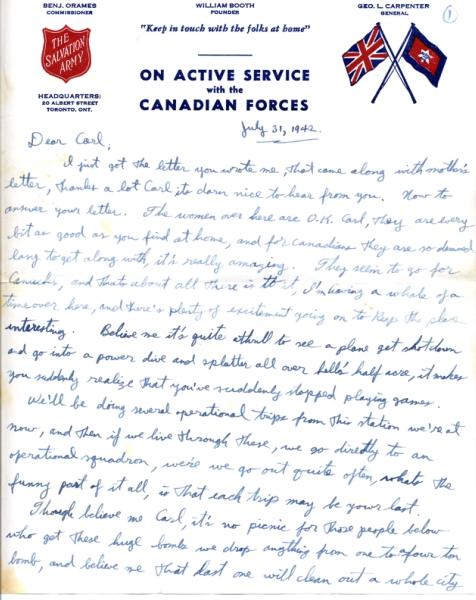 BENJ. ORAMES
COMMISSIONER
WILLIAM BOOTH
FOUNDER
GEO. L. CARPENTER
GENERAL
1
"Keep in touch with the folks at home"
THE
SALVATION
ARMY
HEADQUARTERS:
20 ALBERT STREET
TORONTO, ONT.
ON ACTIVE SERVICE
with the
CANADIAN FORCES
July 31, 1942.
Dear Carl,
I just got the letter you wrote me, that came along with mother's
letter, thanks a lot Carl its darn nice to hear from you. Now to
answer your letter. The women over here are O.K. Carl, they are every
bit as good as you find at home, and for Canadians they are so darned
easy to get along with, it's really amazing. They seem to go for
Canucks, and thats about all there is to it, I'm having a whale of a
time over here, and there's plenty of excitement going on to keep the place
interesting. Believe me it's quite a thrill to see a plane get shot down
and go into a power dive and splatter all over hell's half acre, it makes
you suddenly realize that you've suddenly stopped playing games.
We'll be doing several operational trips from this station we're at
now, and then if we live through these, we go directly to an
operational squadron, were we go out quite often, whats the
funny part of it all, is that each trip may be your last.
Though believe me Carl, it's no picnic for those people below
who get these huge bombs we drop anything from one to a four ton
bomb, and believe me that last one will clean out a whole city